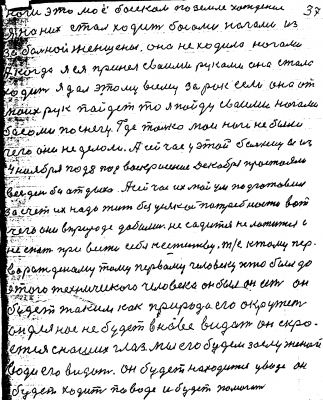 37
ноги это моё босиком по земле хождения
я на них стал ходит босами ногами из
за больной женщены, она не ходила ногами
А когда я ея принел своими руками она стала
ходит я дал этому всему зарок если она от
моих рук пайдет то я пойду своими ногами
басоми по снегу. Где только мои ноги не были
чего они не делали. А сейчас у этой
4 ноября под в воскресение Декабря простояли
без отдыха. А сейчас их
за счёт их надо жит без усякой потребности вот
чего они в природе добились. не садится не ложится и
не спат при вести себя к этому. т/к к тому пер-
ворожденому тому первому человеку што было до
этого технического человека он был он ест он
будет таким как природа его окружет
он для нас не будет виден он скро-
ется с наших глаз. мы его будем
воде его видат. он будет находится у воде он
будет ходит по воде и будет помогат